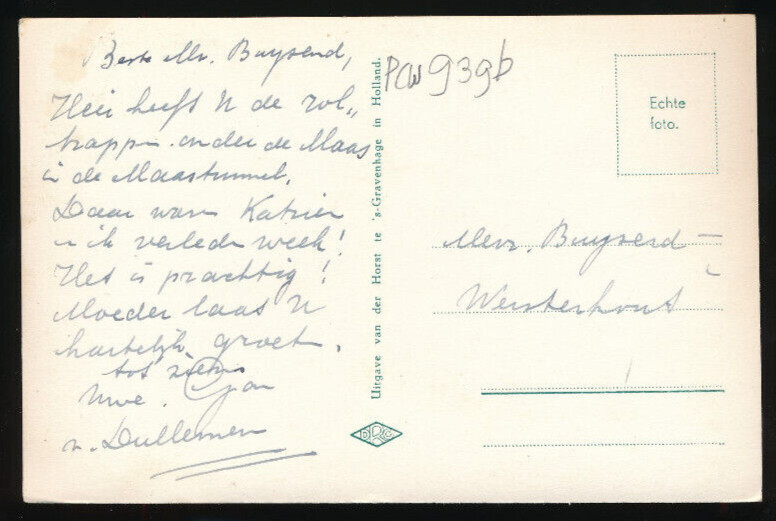 Beste Mr. Buysend,
Hier heeft U de rol„
trappen onder de Maas
in de Maastunnel.
Daar waren Katrien
en ik verleden week!
Het is prachtig!
Moeder laas U
hartelijk groet.
tot ziens
Uwe.
v. Dullemen
Uitgave van der Horst te 's-Gravenhage in Holland.
PCW 939b
Echte
foto.
Mevr. Buysend